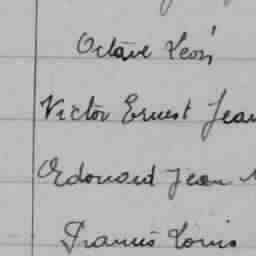 Octave Léon
Victor Ernest Jean
Edouard Jean
Francis Louis